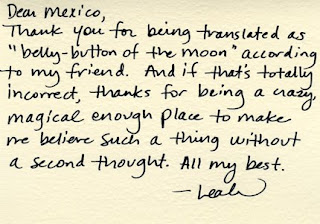 Dear Mexico,
Thank you for being translated as
"belly-button of the moon" according
to my friend. And if that's totally
incorrect, thanks for being a crazy,
magical enough place to make
me believe such a thing without
a second thought. All my best.
—Leah